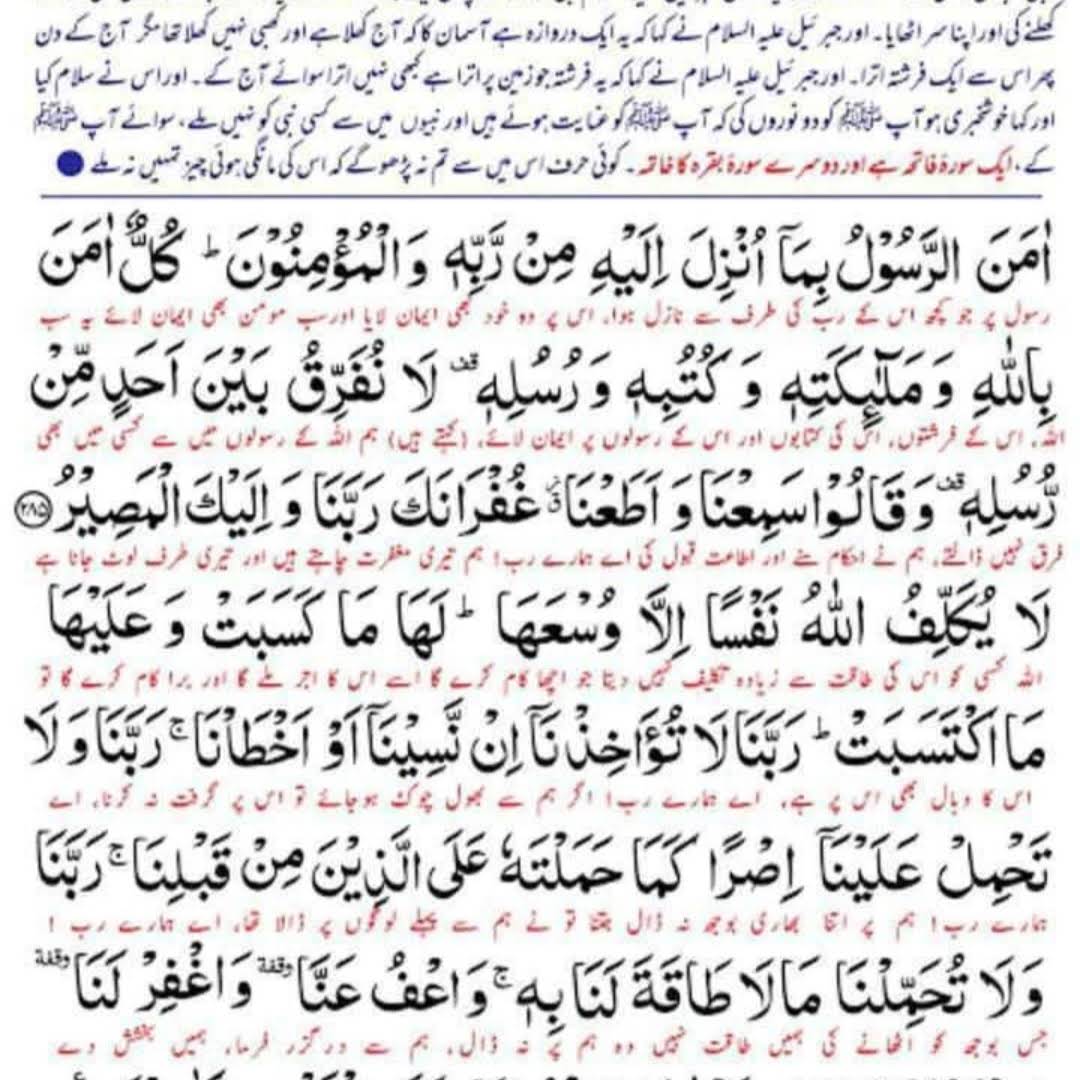 کھلنے کی اور اپنا سر اٹھایا۔ اور جبرئیل علیہ السلام نے کہا کہ یہ ایک دروازہ ہے آسمان کا کہ آج کھلا ہے اور کبھی نہیں کھلا تھا مگر آج کے دن
پھر اس سے ایک فرشتہ اترا۔ اور جبرئیل علیہ السلام نے کہا کہ یہ فرشتہ جو زمین پر اترا ہے کبھی نہیں اترا سوائے آج کے۔ اور اس نے سلام کیا
اور کہا خوشخبری ہو آپ ﷺ کو دو نوروں کی کہ آپ ﷺ کو عنایت ہوئے ہیں اور نبیوں میں سے کسی نبی کو نہیں ملے، سوائے آپ ﷺ
کے، ایک سورۂ فاتحہ ہے اور دوسرے سورۂ بقرہ کا خاتمہ۔ کوئی حرف اس میں سے تم نہ پڑھو گے کہ اس کی مانگی ہوئی چیز تمہیں نہ ملے
اٰمَنَ الرَّسُوْلُ بِمَاۤ اُنْزِلَ اِلَیْهِ مِنْ رَّبِّهٖ وَالْمُؤْمِنُوْنَ ؕ كُلٌّ اٰمَنَ
رسول پر جو کچھ اس کے رب کی طرف سے نازل ہوا، اس پر وہ خود بھی ایمان لایا اور سب مومن بھی ایمان لائے یہ سب
بِاللّٰهِ وَ مَلٰٓىِٕكَتِهٖ وَ كُتُبِهٖ وَ رُسُلِهٖ قف لَا نُفَرِّقُ بَیْنَ اَحَدٍ مِّنْ
اللہ، اس کے فرشتوں، اس کی کتابوں اور اس کے رسولوں پر ایمان لائے، (کہتے ہیں) ہم اللہ کے رسولوں میں سے کسی میں بھی
رُّسُلِهٖ قف وَ قَالُوْا سَمِعْنَا وَ اَطَعْنَا غُفْرَانَكَ رَبَّنَا وَ اِلَیْكَ الْمَصِیْرُ ۝۲۸۵
فرق نہیں ڈالتے، ہم نے احکام سنے اور اطاعت قبول کی اے ہمارے رب! ہم تیری مغفرت چاہتے ہیں اور تیری طرف لوٹ جانا ہے
لَا یُكَلِّفُ اللّٰهُ نَفْسًا اِلَّا وُسْعَهَا ؕ لَهَا مَا كَسَبَتْ وَ عَلَیْهَا
اللہ کسی کو اس کی طاقت سے زیادہ تکلیف نہیں دیتا جو اچھا کام کرے گا اسے اس کا اجر ملے گا اور برا کام کرے گا تو
مَا اكْتَسَبَتْ ؕ رَبَّنَا لَا تُؤَاخِذْنَاۤ اِنْ نَّسِیْنَاۤ اَوْ اَخْطَاْنَا ۚ رَبَّنَا وَ لَا
اس کا وبال بھی اس پر ہے، اے ہمارے رب! اگر ہم سے بھول چوک ہوجائے تو اس پر گرفت نہ کرنا، اے
تَحْمِلْ عَلَیْنَاۤ اِصْرًا كَمَا حَمَلْتَهٗ عَلَی الَّذِیْنَ مِنْ قَبْلِنَا ۚ رَبَّنَا
ہمارے رب! ہم پر اتنا بھاری بوجھ نہ ڈال جتنا تو نے ہم سے پہلے لوگوں پر ڈالا تھا، اے ہمارے رب !
وَ لَا تُحَمِّلْنَا مَا لَا طَاقَةَ لَنَا بِهٖ ۚ وَ اعْفُ عَنَّا وقفة وَ اغْفِرْ لَنَا وقفة
جس بوجھ کو اٹھانے کی ہمیں طاقت نہیں وہ ہم پر نہ ڈال، ہم سے درگزر فرما، ہمیں بخشش دے